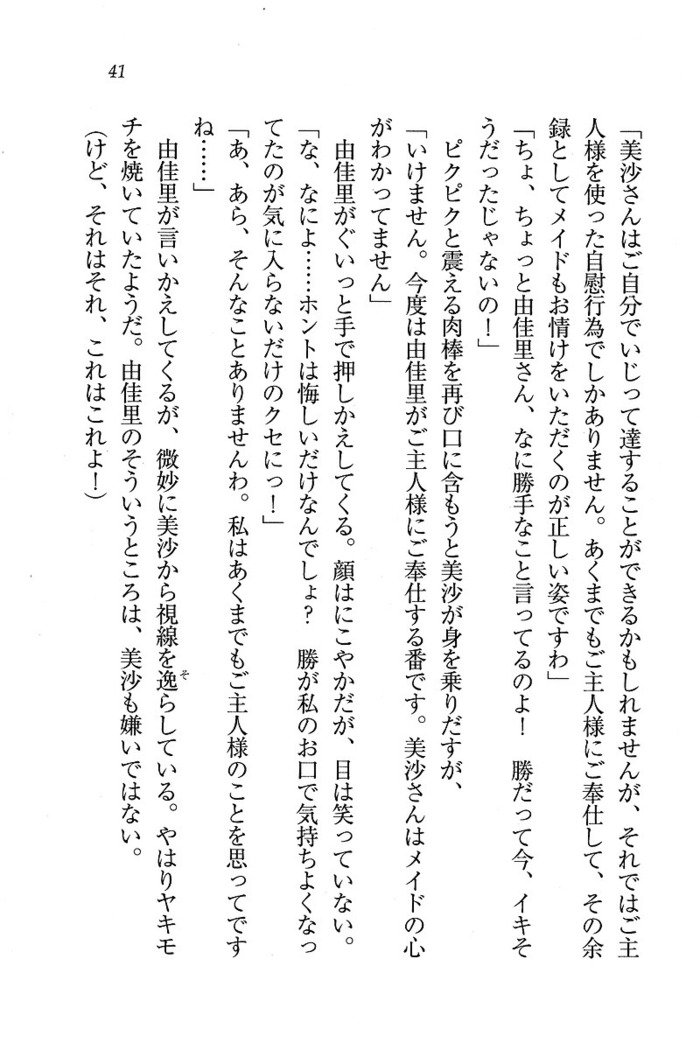 41
「美沙さんはご自分でいじって達することができるかもしれませんが、それではご主
人様を使った自慰行為でしかありません。あくまでもご主人様にご奉仕して、その余
録としてメイドもお情けをいただくのが正しい姿ですわ」
「ちょ、ちょっと由佳里さん、なに勝手なこと言ってるのよ！　勝だって今、イキそ
うだったじゃないの！」
　ピクピクと震える肉棒を再び口に含もうと美沙が身を乗りだすが、
「いけません。今度は由佳里がご主人様にご奉仕する番です。美沙さんはメイドの心
がわかってません」
　由佳里がぐいっと手で押しかえしてくる。顔はにこやかだが、目は笑っていない。
「な、なによ……ホントは悔しいだけなんでしょ？　勝が私のお口で気持ちよくなっ
てたのが気に入らないだけのクセにっ！」
「あ、あら、そんなことありませんわ。私はあくまでもご主人様のことを思ってです
ね……」
　由佳里が言いかえしてくるが、微妙に美沙から視線を逸らしている。やはりヤキモ
チを焼いていたようだ。由佳里のそういうところは、美沙も嫌いではない。
（けど、それはそれ、これはこれよ！）